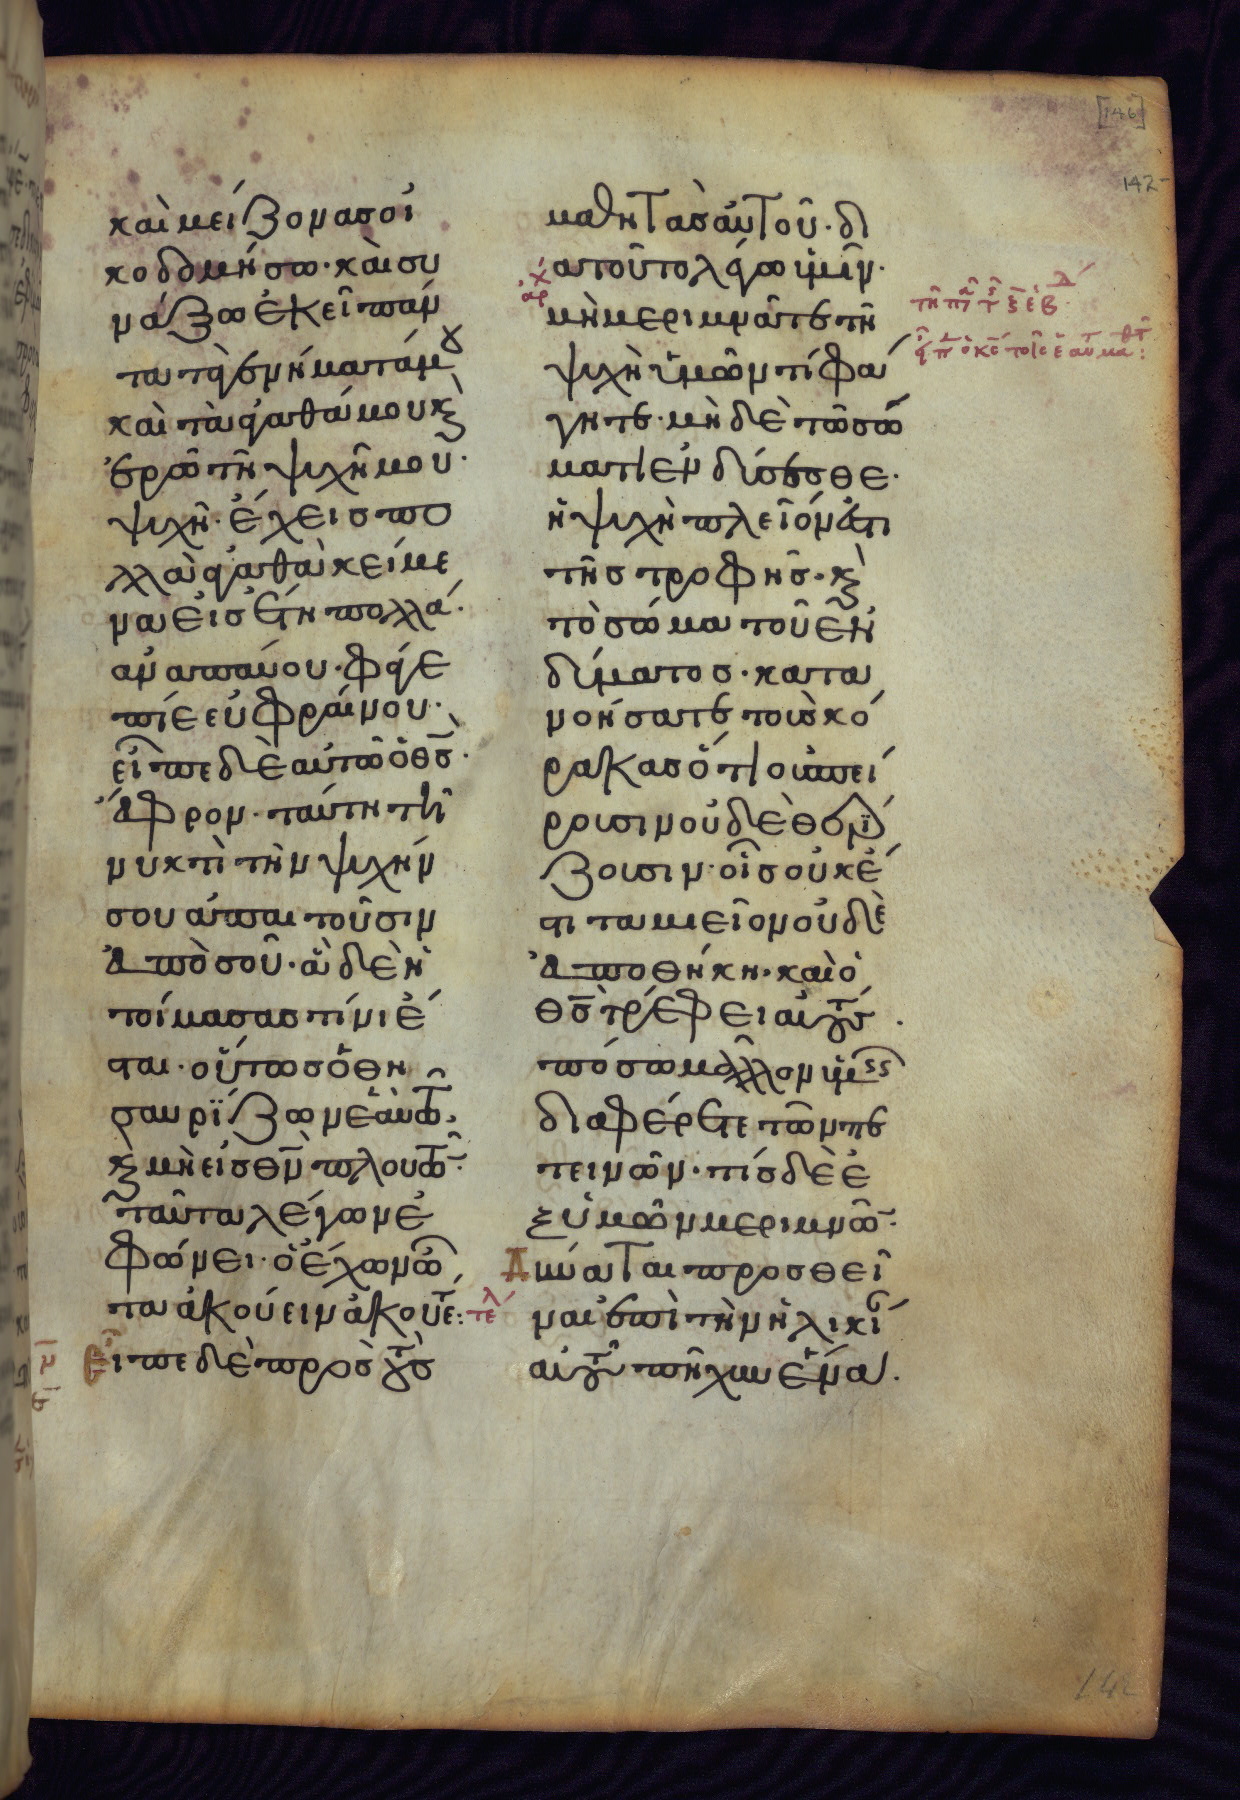 [146]
142
καὶ μείζονας οἰ
κοδομήσω· καὶ συ
νάξω ἐκεῖ πάν
τα τὰ γεννήματά μου
καὶ τὰ ἀγαθά μου κ(αὶ)
ἐρῶ τῆ ψυχῆ μου·
ψυχὴ· ἔχεις πο
λλὰ ἀγαθὰ κείμε
να εἰς ἔτη πολλά·
ἀναπαύου· φάγε
πίε εὐφραίνου·
εἶπε δὲ αὐτῶ ὁ θς·
ἄφρον· ταύτη τῆ
νυκτὶ τὴν ψυχήν
σου ἀπαιτοῦσιν
ἀπὸ σοῦ· ἃ δὲ ἡ
τοίμασας τίνι ἔ
σται· οὕτως ὁ θη
σαυρίζων ἑαυτῶ·
κ(αὶ) μὴ εἰς θν πλουτῶν·
ταῦτα λέγων ἐ
φώνει· ὁ ἔχων ὦ
τα ἀκούειν ἀκουέτω: τέλ
Εἶπε δὲ πρὸς τοὺς
μαθητὰς αὐτοῦ· δι
ὰ τοῦτο λέγω ὑμῖν·
μὴ μεριμνᾶτε τῆ
ψυχῆ ὑμῶν τί φά
γητε· μὴ δὲ τῶ σώ
ματι ἐνδύσεσθε·
ἡ ψυχὴ πλεῖόν ἐστι
τῆς τροφῆς· κ(αὶ)
τὸ σῶμα τοῦ ἐν
δύματος· κατα
νοήσατε τοὺς κό
ρακας ὅτι οὐ σπεί
ρουσιν οὐδὲ θερί
ζουσιν· οἷς οὐκ ἔ
στι ταμεῖον οὐδὲ
ἀποθήκη· καὶ ὁ
θς τρέφει αὐτούς·
πόσω μᾶλλον ὑμεῖς
διαφέρετε τῶν πε
τεινῶν· τίς δὲ ἐ
ξ ὑμῶν μεριμνῶν·
δύναται προσθεῖ
ναι ἐπὶ τὴν ἡλικί
αν αὐτοῦ πῆχυν ἕνα·
142